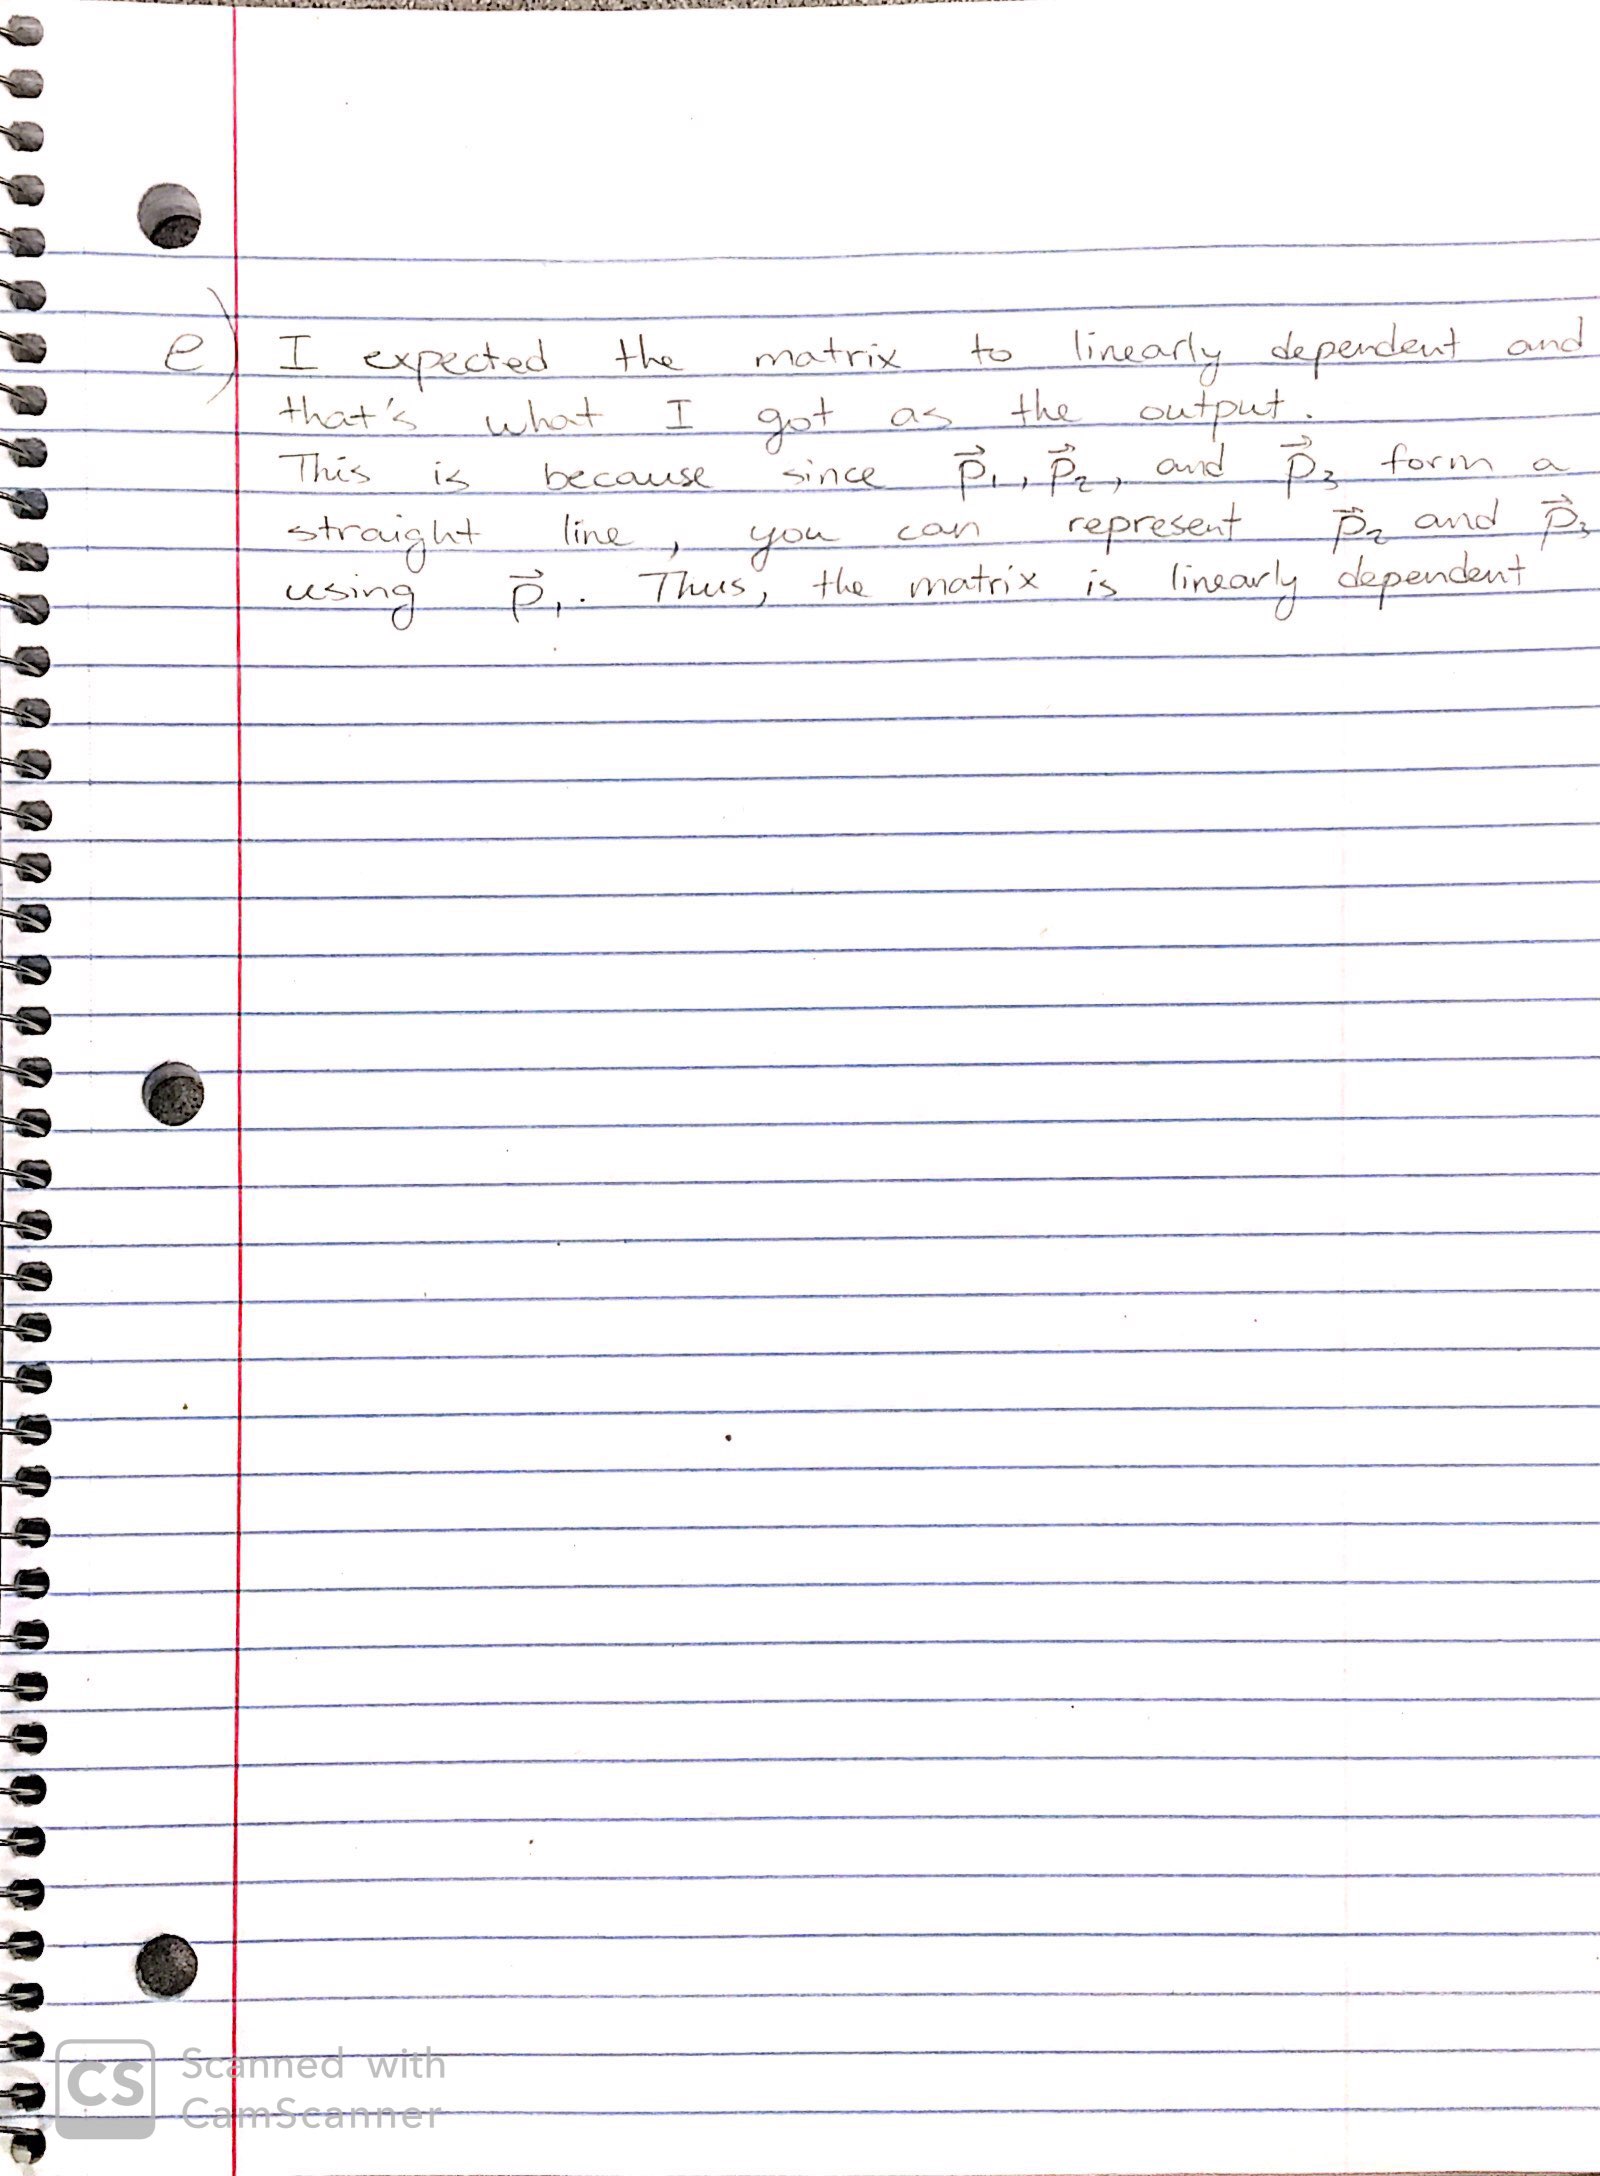 e) I expected the matrix to linearly dependent and
that's what I got as the output.
This is because since p⃗₁, p⃗₂, and p⃗₃ form a
straight line, you can represent p⃗₂ and p⃗₃
using p⃗₁. Thus, the matrix is linearly dependent
CS Scanned with
CamScanner